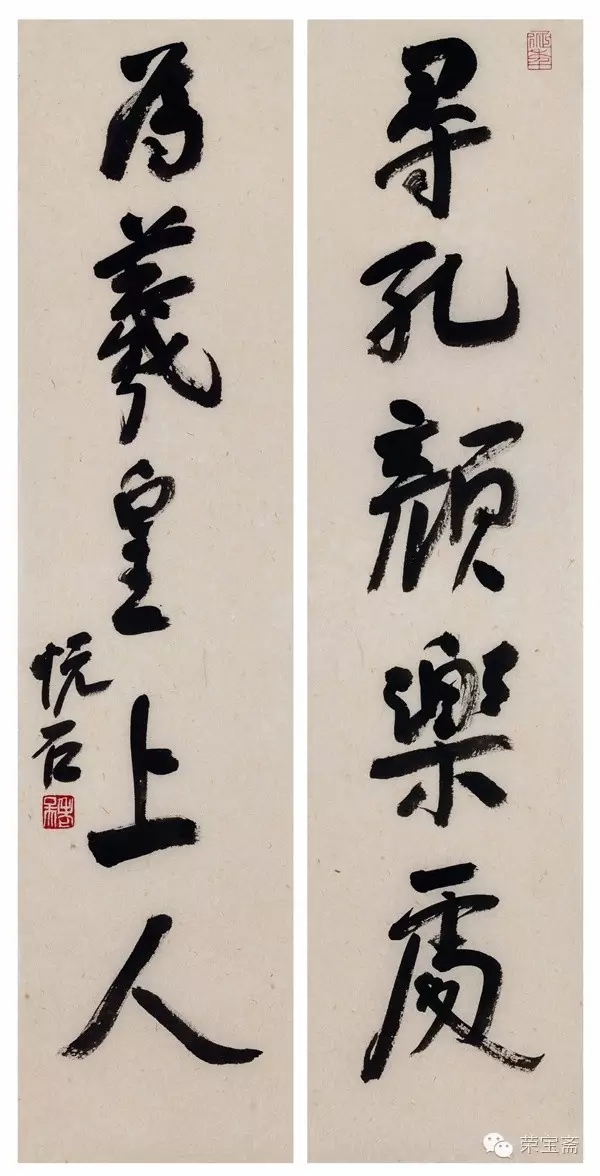 尋孔顏樂處
為羲皇上人
悅石
荣宝斋